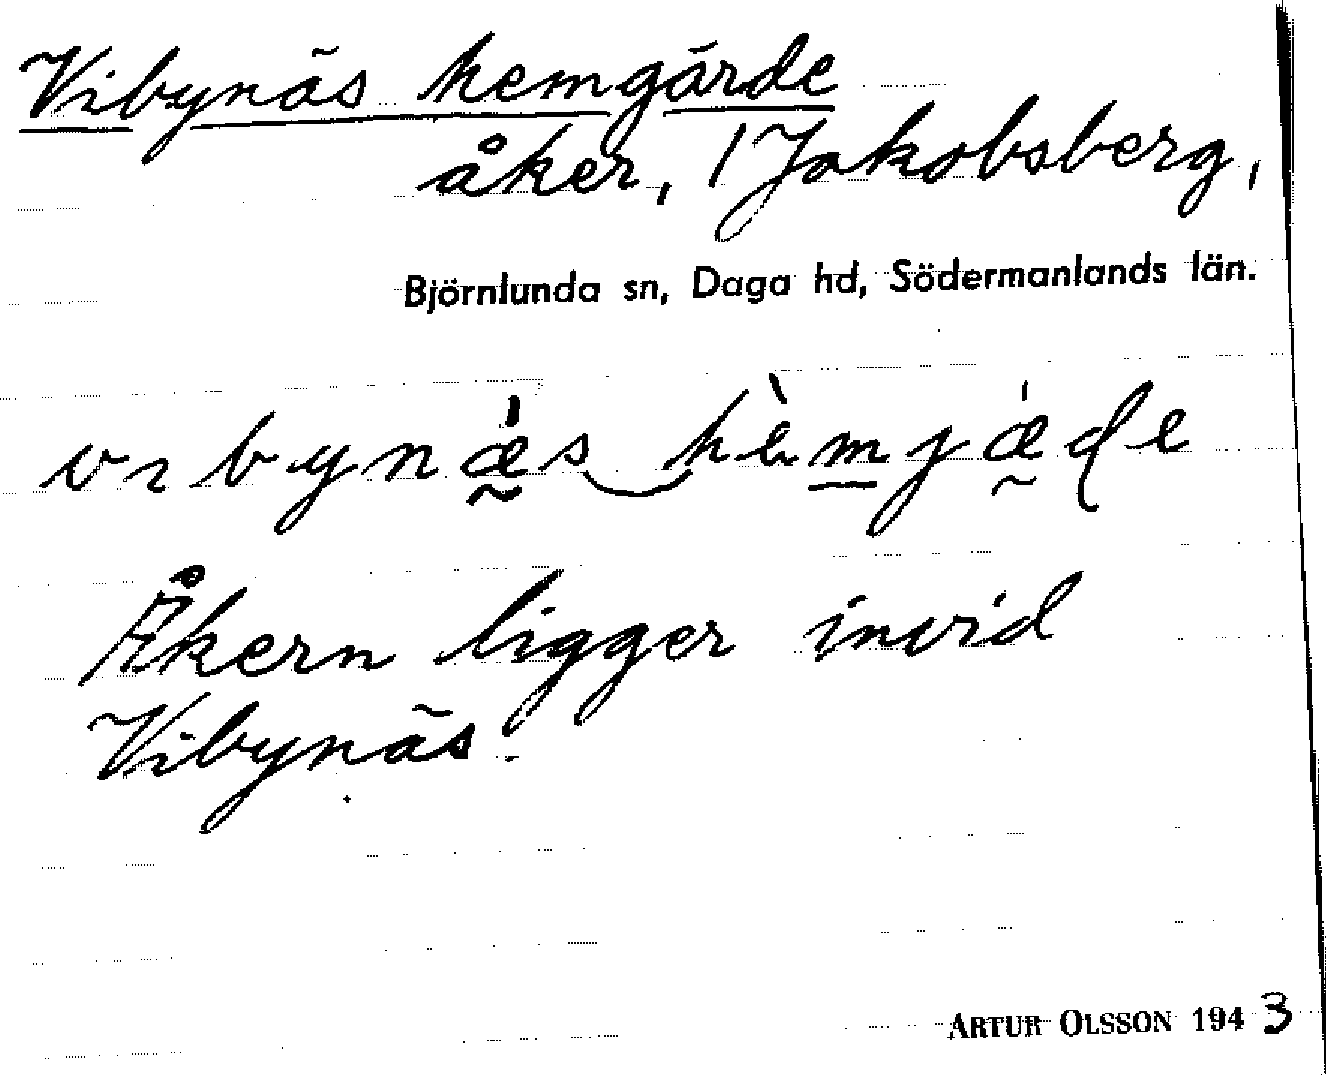 Vibynäs hemgärde
åker, 1 Jakobsberg,
Björnlunda sn, Daga hd, Södermanlands län.
Åkern ligger invid
Vibynäs.
ARTUR OLSSON 1943